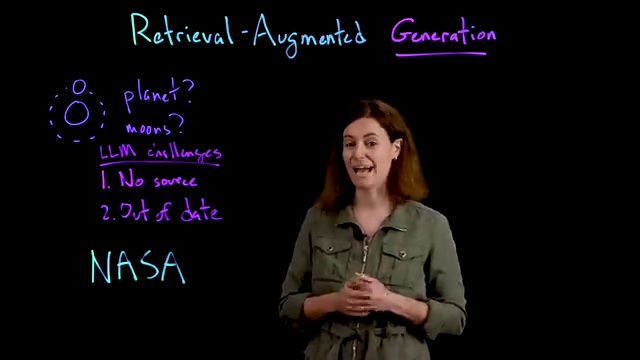 Retrieval-Augmented Generation
planet?
moons?
LLM challenges
1. No source
2. Out of date
NASA